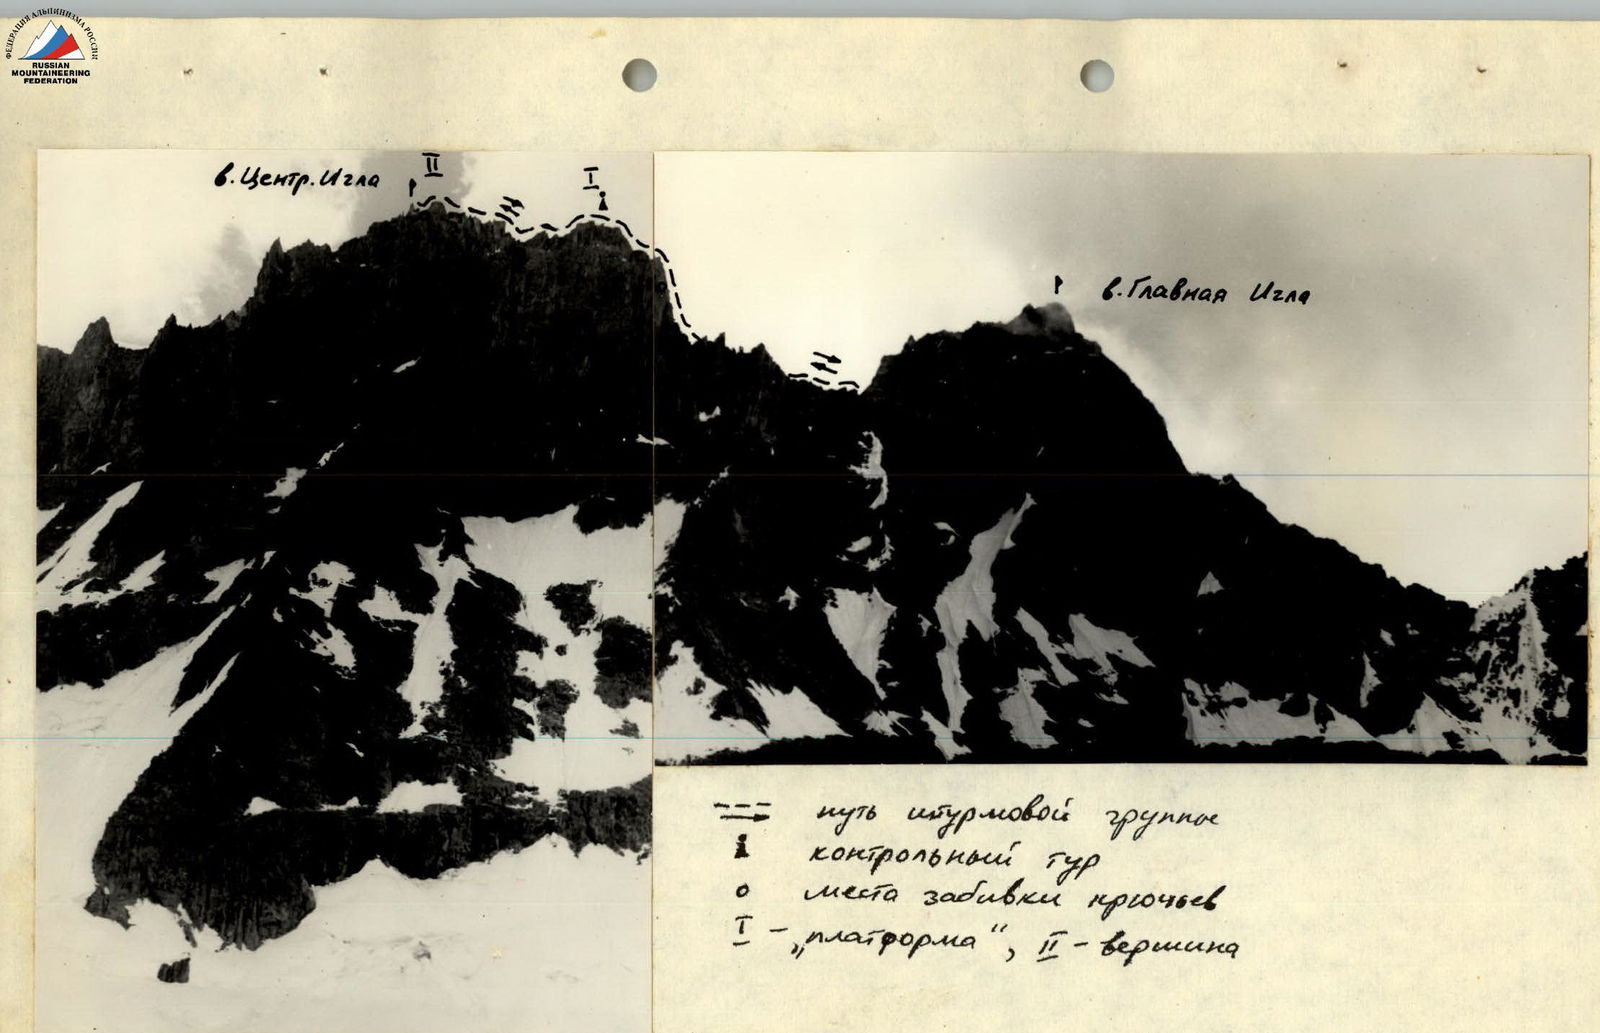 ФЕДЕРАЦИЯ АЛЬПИНИЗМА РОССИИ
RUSSIAN
MOUNTAINEERING
FEDERATION
II
в. Центр. Игла
I
в. Главная Игла
путь штурмовой группы
контрольный тур
места забивки крючьев
I - „платформа", II - вершина